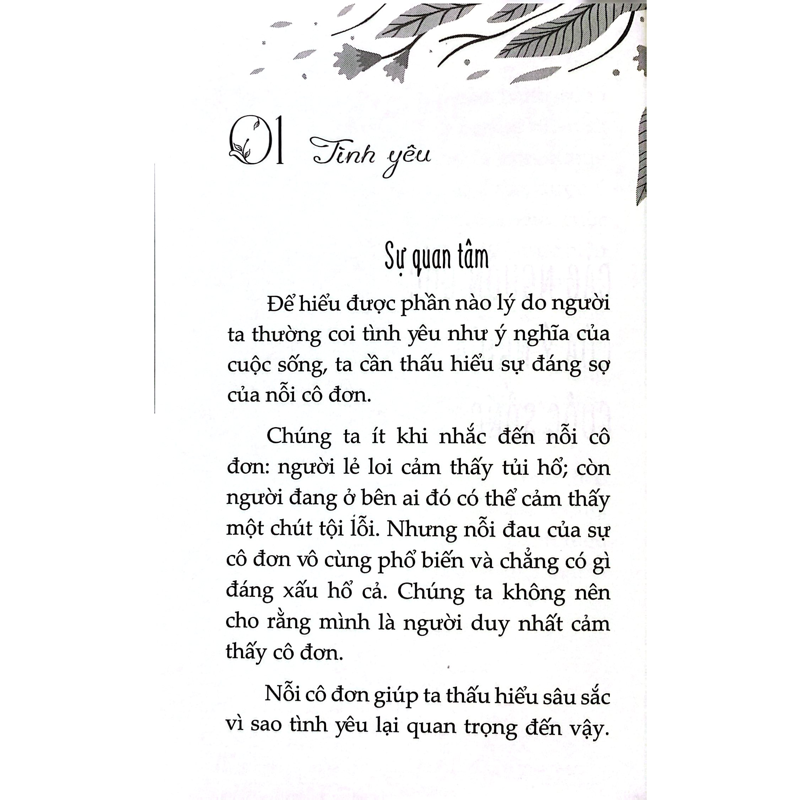 01 Tình yêu
Sự quan tâm
Để hiểu được phần nào lý do người
ta thường coi tình yêu như ý nghĩa của
cuộc sống, ta cần thấu hiểu sự đáng sợ
của nỗi cô đơn.
Chúng ta ít khi nhắc đến nỗi cô
đơn: người lẻ loi cảm thấy tủi hổ; còn
người đang ở bên ai đó có thể cảm thấy
một chút tội lỗi. Nhưng nỗi đau của sự
cô đơn vô cùng phổ biến và chẳng có gì
đáng xấu hổ cả. Chúng ta không nên
cho rằng mình là người duy nhất cảm
thấy cô đơn.
Nỗi cô đơn giúp ta thấu hiểu sâu sắc
vì sao tình yêu lại quan trọng đến vậy.